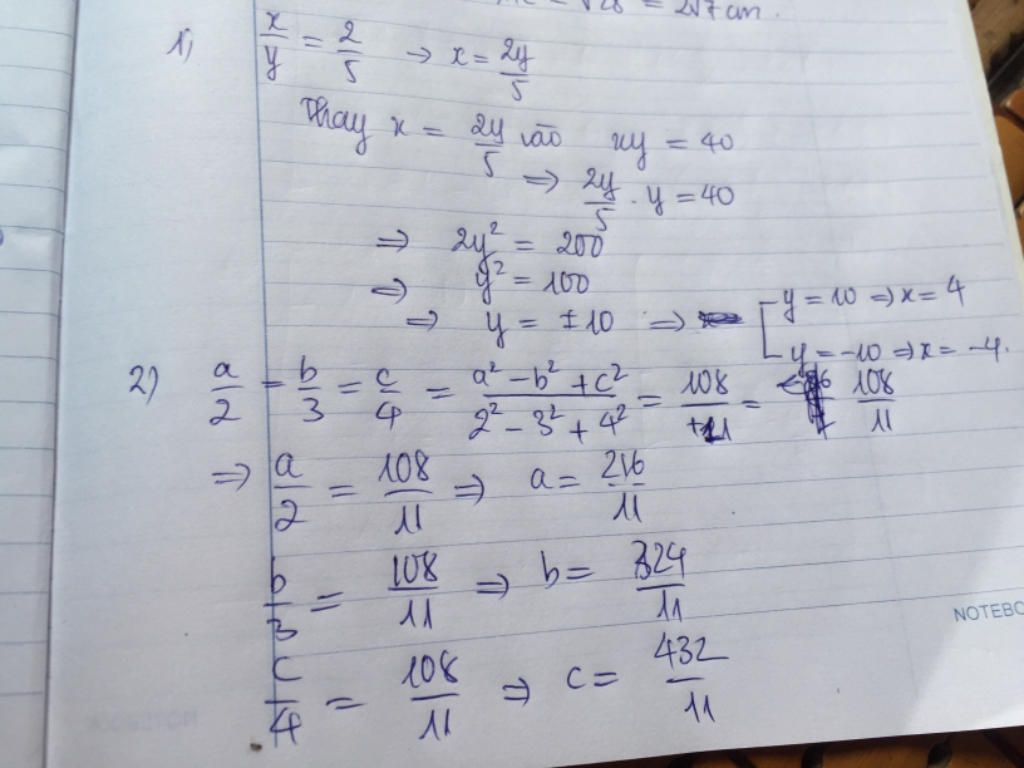 = √28 = 2√7 cm.
1) x/y = 2/5 → x = 2y/5
Thay x = 2y/5 vào xy = 40
⇒ 2y/5 . y = 40
⇒ 2y² = 200
⇒ y² = 100
⇒ y = ±10 ⇒ [ y = 10 ⇒ x = 4
y = -10 ⇒ x = -4.
2) a/2 = b/3 = c/4 = (a² - b² + c²)/(2² - 3² + 4²) = 108/+11 = 108/11
⇒ a/2 = 108/11 ⇒ a = 216/11
b/3 = 108/11 ⇒ b = 324/11
NOTEBO
c/4 = 108/11 ⇒ c = 432/11